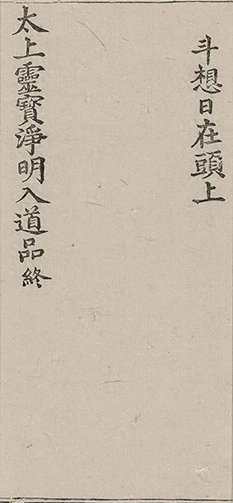 斗想日在頭上
太上靈寶淨明入道品終